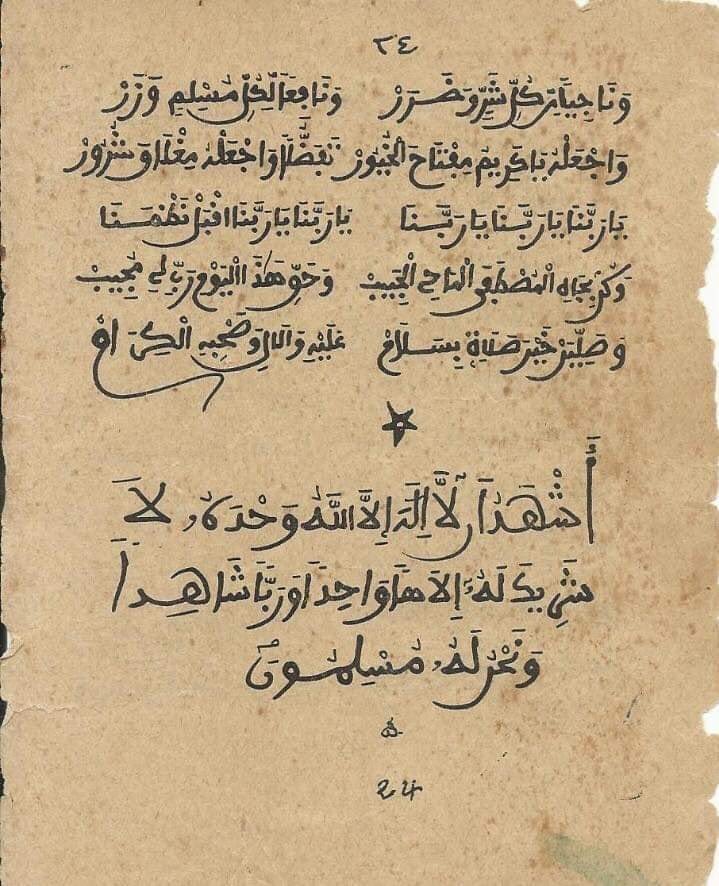 ٢٤
وَنَاجِيًا مِن كُلِّ شَرٍّ وَضَرَرْ وَنَافِعًا لِكُلِّ مُسْلِمٍ وَزَرْ
وَاجْعَلْهُ يَا كَرِيمُ مِفْتَاحَ الْخُيُورْ تَفَضُّلًا وَاجْعَلْهُ مِغْلَاقَ شُرُورْ
يَا رَبَّنَا يَا رَبَّنَا يَا رَبَّنَا يَا رَبَّنَا يَا رَبَّنَا اقْبَلْ نَظْمَنَا
وَكُن بِجَاهِ الْمُصْطَفَى الْمَاحِي الْحَبِيبْ وَحَقِّ هَذَا الْيَوْمِ رَبِّ لِي مُجِيبْ
وَصَلِّيَنْ خَيْرَ صَلَاةٍ بِسَلَامْ عَلَيْهِ وَالْآلِ وَصَحْبِهِ الْكِرَامْ
أَشْهَدُ أَن لَّا إِلَهَ إِلَّا اللَّهُ وَحْدَهُ لَا
شَرِيكَ لَهُ إِلَاهًا وَاحِدًا وَرَبًّا شَاهِدًا
وَنَحْنُ لَهُ مُسْلِمُونَ
24